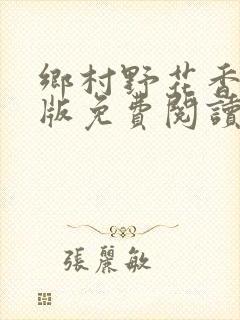 鄉村野花香
版免費閱讀
張麗敏